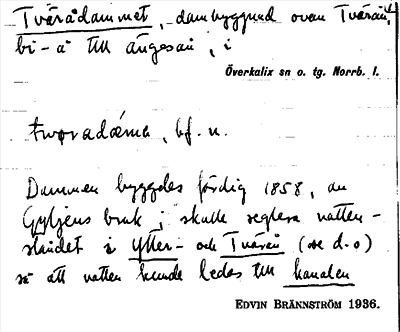 Tvärådammet, dambyggnad ovan Tvärån,
bi-å till Ängesån, i
Överkalix sn o. tg. Norrb. l.
bf. n.
Dammen byggdes färdig 1858, av
Gyljens bruk, skulle reglera vatten-
ståndet i Ytter- och Tvärån (se d.o)
så att vatten kunde ledas till kanalen
EDVIN BRÄNNSTRÖM 1936.